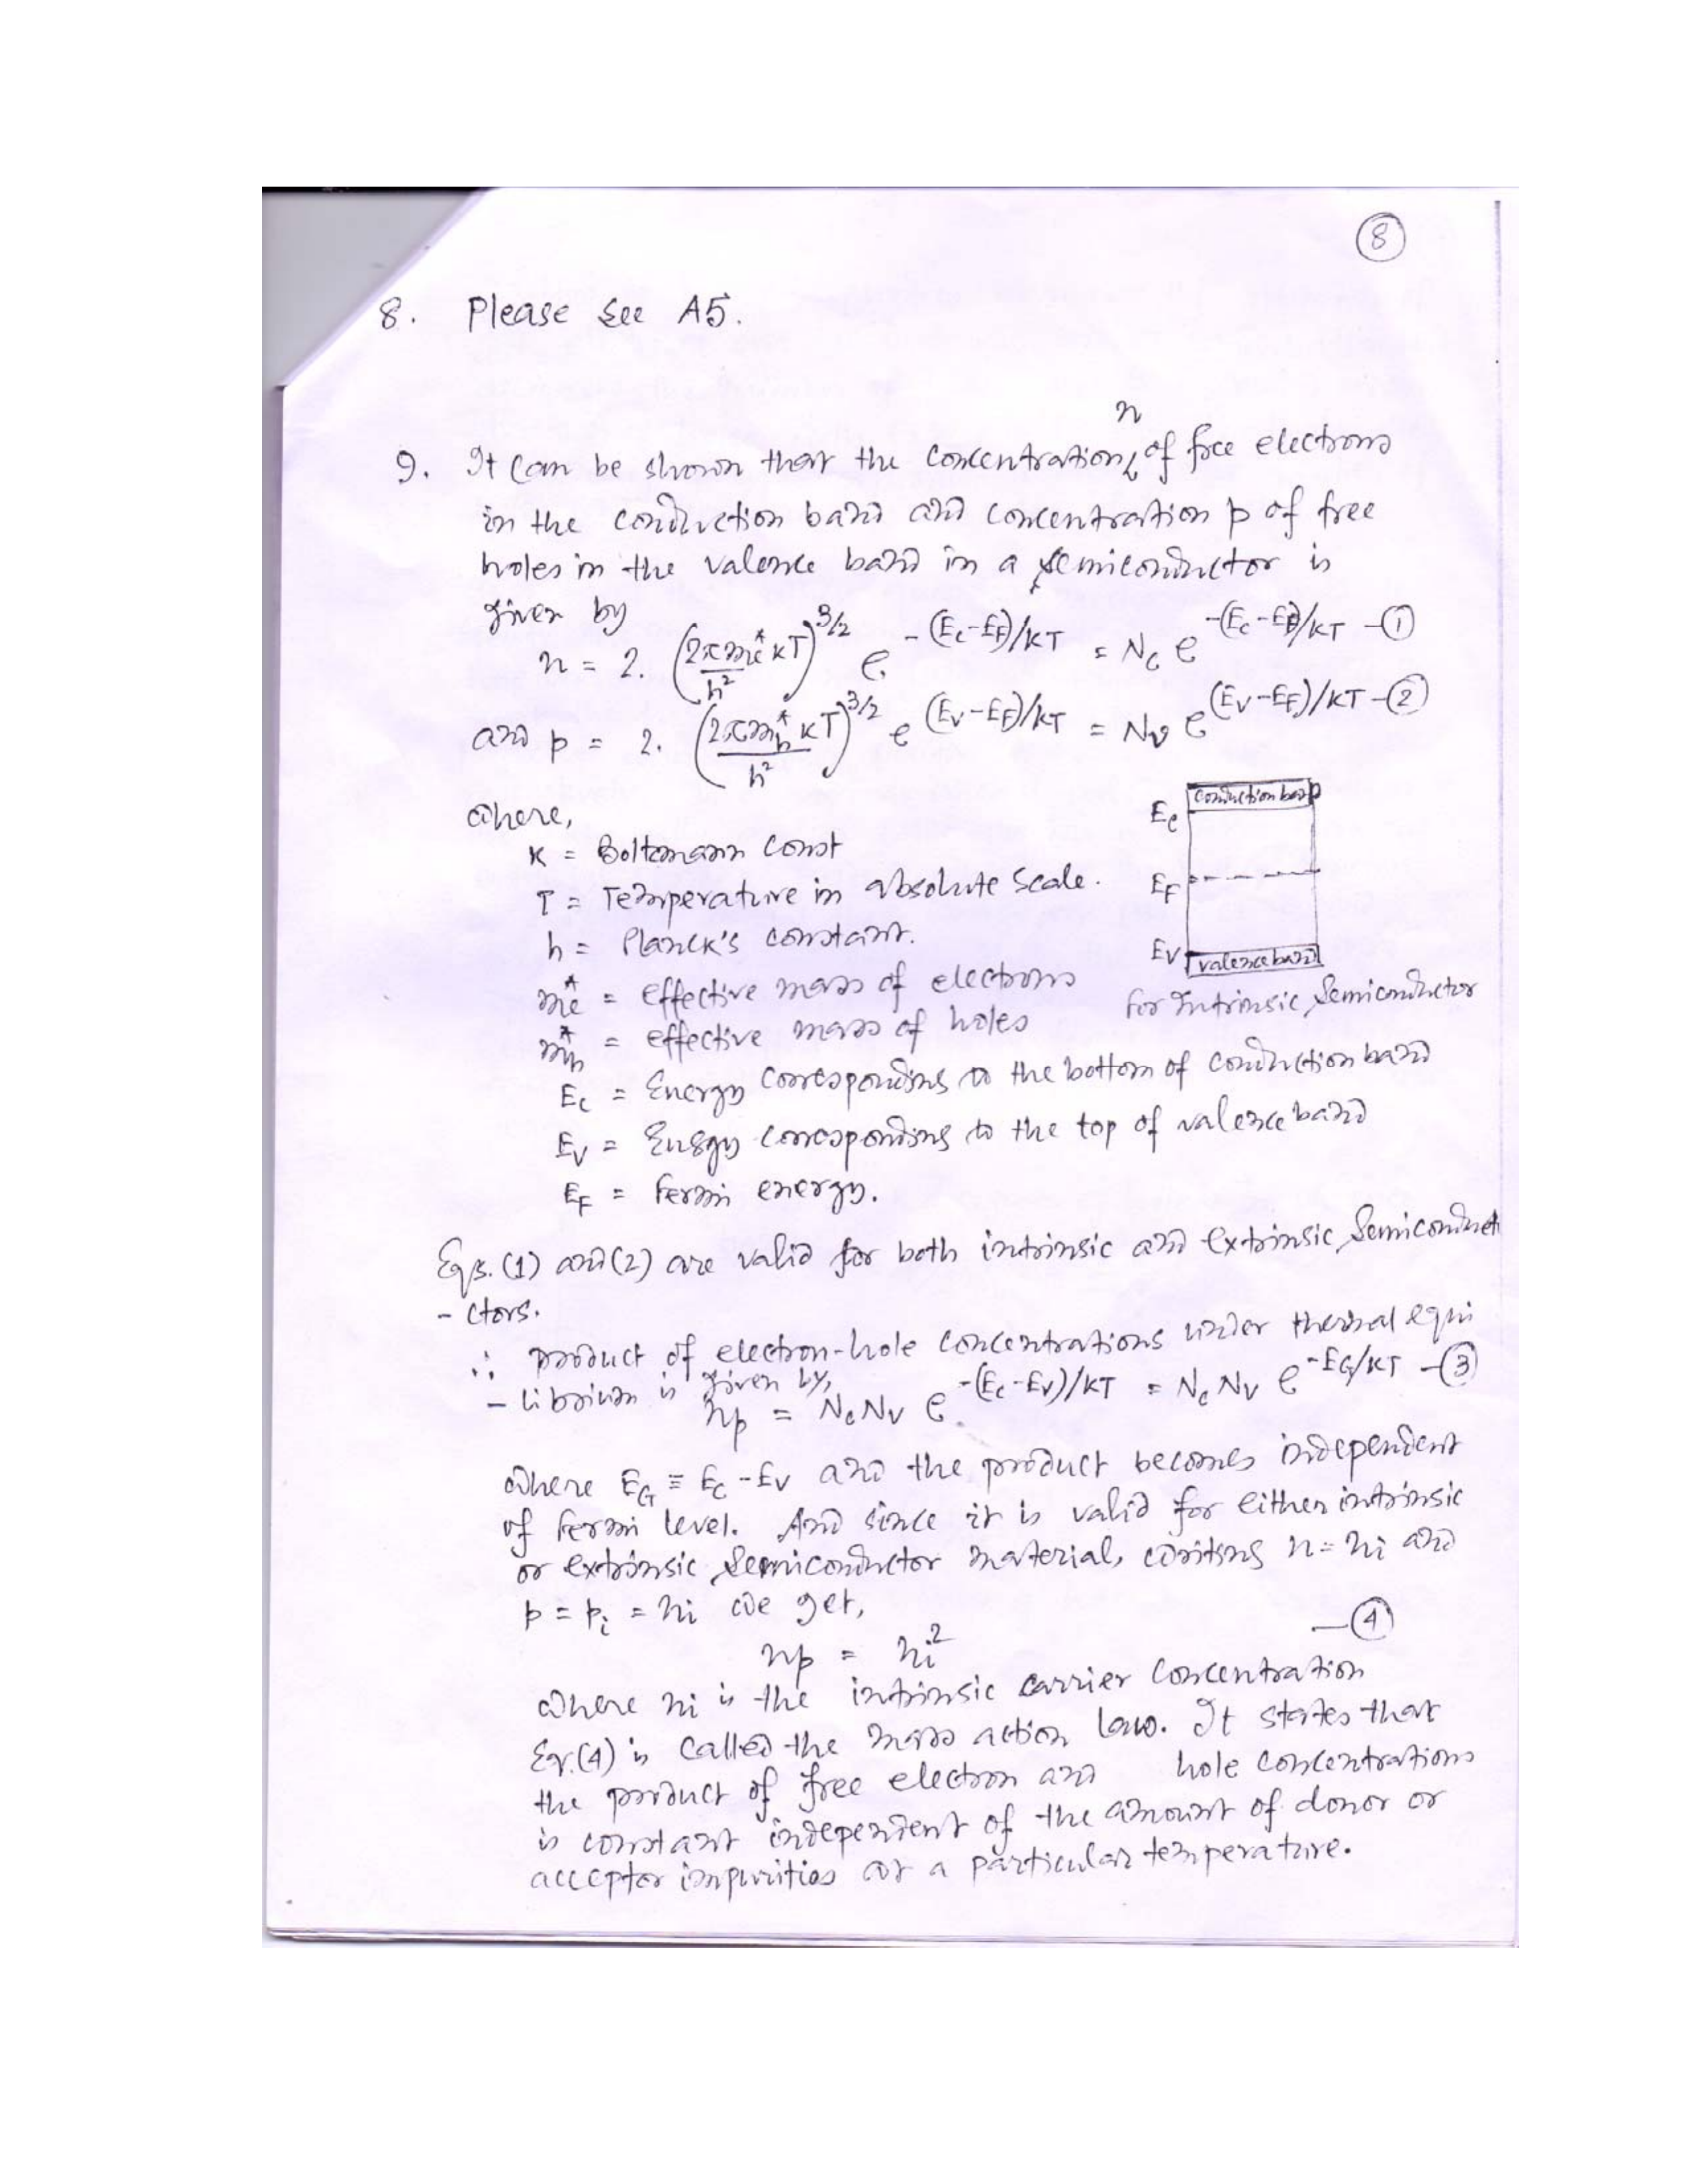 8
8. Please see A5.
n
9. It can be shown that the concentration of free electrons
in the conduction band and concentration p of free
holes in the valence band in a semiconductor is
given by
n = 2. (2πme* kT / h²)^3/2 e^-(Ec-EF)/kT = Nc e^-(Ec-EF)/kT - (1)
and p = 2. (2πmh* kT / h²)^3/2 e^(Ev-EF)/kT = Nv e^(Ev-EF)/kT - (2)
where,
K = Boltzmann Const
T = Temperature in absolute scale.
h = Planck's constant.
me* = effective mass of electrons
mh* = effective mass of holes
Ec conduction band
EF
Ev valence band
For Intrinsic Semiconductor
Ec = Energy corresponding to the bottom of conduction band
Ev = Energy corresponding to the top of valence band
EF = Fermi energy.
Eqs. (1) and (2) are valid for both intrinsic and extrinsic Semiconduct
- ctors.
∴ product of electron-hole concentrations under thermal equi
- librium is given by,
np = NcNv e^-(Ec-Ev)/kT = NcNv e^-EG/kT - (3)
where EG ≡ Ec - Ev and the product becomes independent
of Fermi level. And since it is valid for either intrinsic
or extrinsic Semiconductor material, writing n = ni and
p = pi = ni we get,
np = ni² - (4)
where ni is the intrinsic carrier concentration
Eq. (4) is called the mass action law. It states that
the product of free electron and hole concentrations
is constant independent of the amount of donor or
acceptor impurities at a particular temperature.